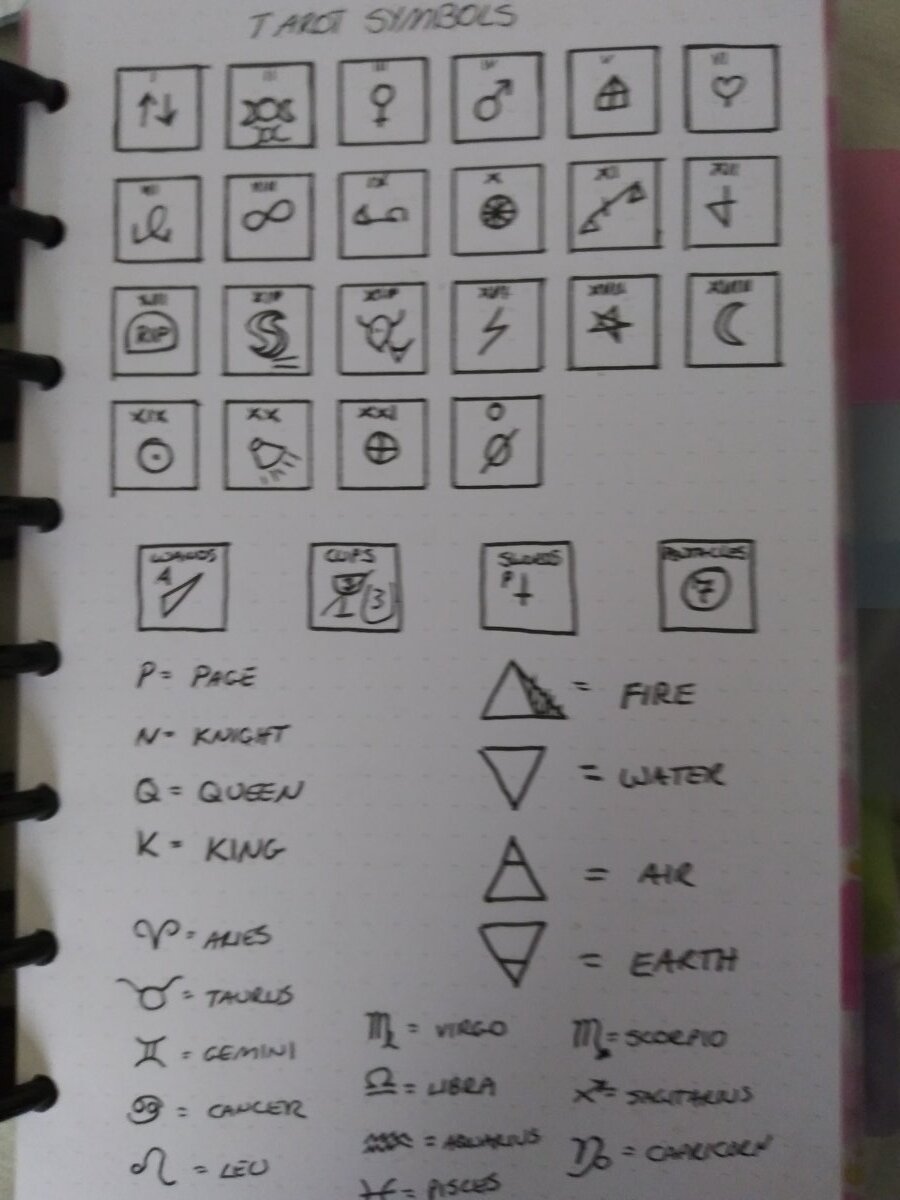 TAROT SYMBOLS
I II III IV V VI
VII VIII IX X XI XII
XIII XIV XVI XVII XVIII
RIP
XIX XX XXI O
WANDS CUPS SWORDS PENTACLES
A 3 (3) P 7
P = PAGE
= FIRE
N = KNIGHT
= WATER
Q = QUEEN
K = KING
= AIR
= ARIES
= EARTH
= TAURUS
= VIRGO = SCORPIO
= GEMINI
= LIBRA = SAGITARIUS
= CANCER
= AQUARIUS = CAPRICORN
= LEO
= PISCES